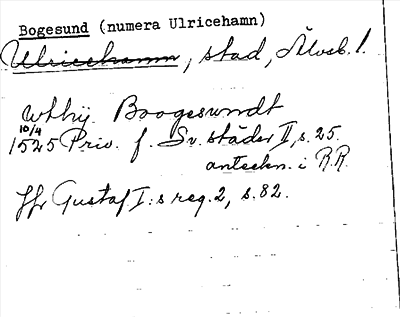 Bogesund (numera Ulricehamn)
Ulricehamn, stad, Älvsb. l.
Boogesundt
10/4
1525 Priv. f. Sv. städer II, s. 25.
anteckn. i R.R.
Jfr Gustaf I:s reg. 2, s. 82.